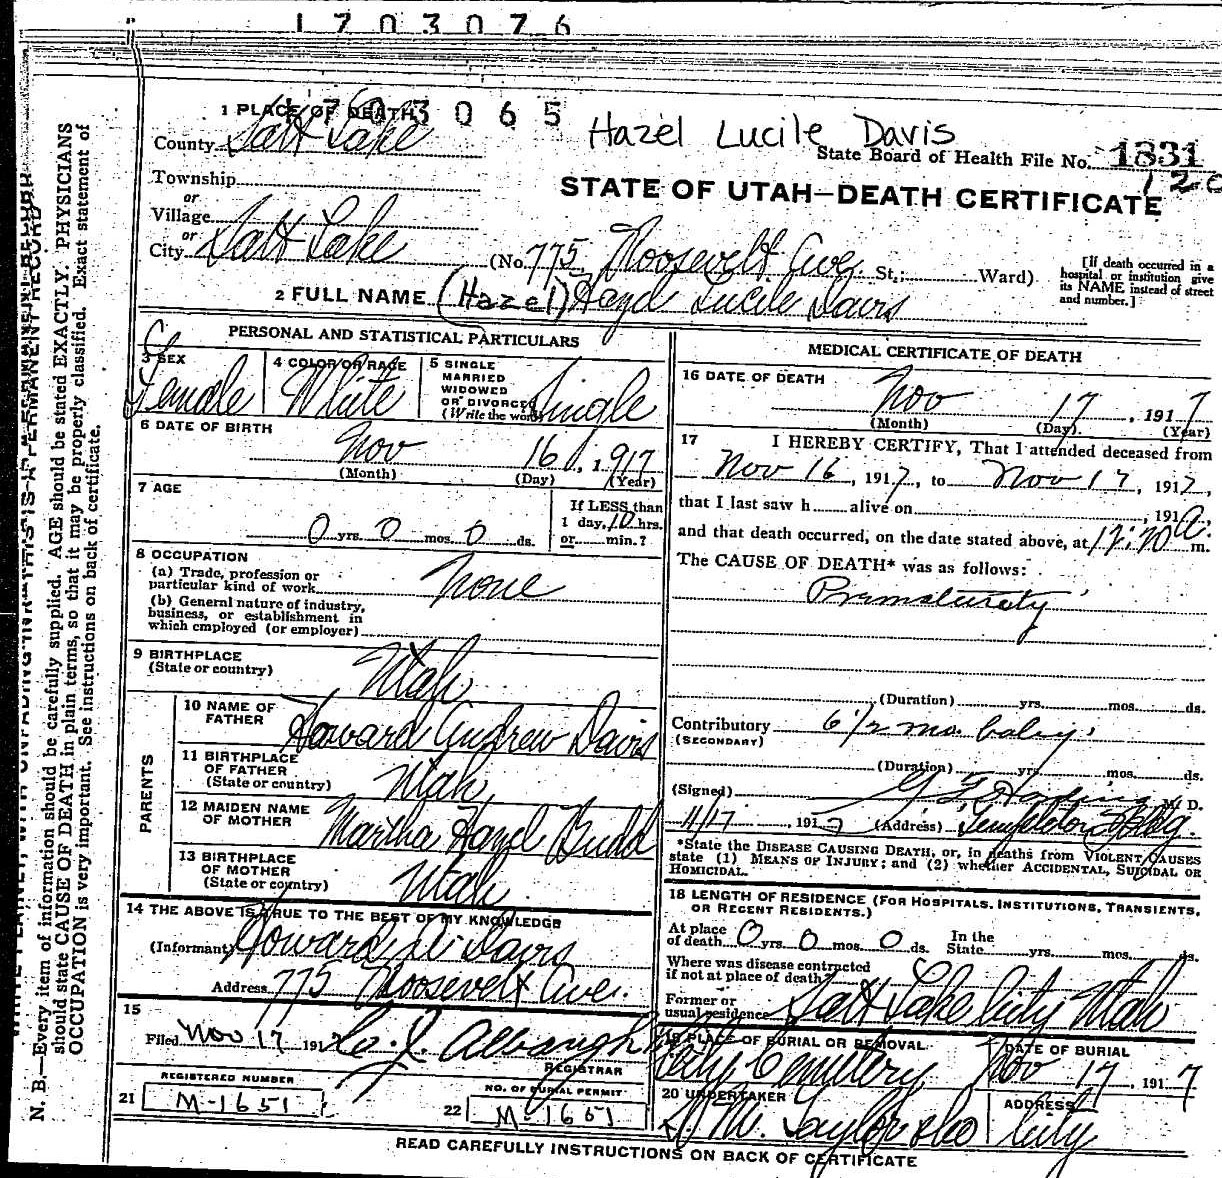 1703076
1703065
Hazel Lucile Davis
State Board of Health File No. 1831
120
STATE OF UTAH—DEATH CERTIFICATE
1 PLACE OF DEATH
County Salt Lake
Township
or
Village
or
City Salt Lake (No. 775 Roosevelt Ave. St.; Ward)
[If death occurred in a hospital or institution give its NAME instead of street and number.]
2 FULL NAME (Hazel) Hazel Lucile Davis
PERSONAL AND STATISTICAL PARTICULARS
3 SEX Female
4 COLOR OR RACE White
5 SINGLE MARRIED WIDOWED OR DIVORCED (Write the word) Single
6 DATE OF BIRTH
Nov 16, 1917
(Month) (Day) (Year)
7 AGE
0 yrs. 0 mos. 0 ds.
If LESS than 1 day, 10 hrs. or min.?
8 OCCUPATION
(a) Trade, profession or particular kind of work None
(b) General nature of industry, business, or establishment in which employed (or employer)
9 BIRTHPLACE
(State or country) Utah
PARENTS
10 NAME OF FATHER Howard Andrew Davis
11 BIRTHPLACE OF FATHER (State or country) Utah
12 MAIDEN NAME OF MOTHER Martha Hazel Budd
13 BIRTHPLACE OF MOTHER (State or country) Utah
14 THE ABOVE IS TRUE TO THE BEST OF MY KNOWLEDGE
(Informant) Howard A. Davis
Address 775 Roosevelt Ave.
15
Filed Nov 17 191
REGISTRAR
REGISTERED NUMBER
21 M-1651
NO. OF BURIAL PERMIT
22 M-1651
MEDICAL CERTIFICATE OF DEATH
16 DATE OF DEATH
Nov 17, 1917
(Month) (Day). (Year)
17 I HEREBY CERTIFY, That I attended deceased from
Nov 16, 1917, to Nov 17, 1917,
that I last saw h alive on , 191
and that death occurred, on the date stated above, at 12:20 a. m.
The CAUSE OF DEATH* was as follows:
Prematurety
(Duration) yrs. mos. ds.
Contributory 6 1/2 mo. baby.
(SECONDARY)
(Duration) yrs. mos. ds.
(Signed) M. D.
11/17, 1917 (Address) Templeton Bldg.
*State the DISEASE CAUSING DEATH, or, in deaths from VIOLENT CAUSES
state (1) MEANS OF INJURY; and (2) whether ACCIDENTAL, SUICIDAL OR
HOMICIDAL.
18 LENGTH OF RESIDENCE (FOR HOSPITALS, INSTITUTIONS, TRANSIENTS,
OR RECENT RESIDENTS.)
At place of death 0 yrs. 0 mos. 0 ds. In the State yrs. mos. ds.
Where was disease contracted if not at place of death?
Former or usual residence Salt Lake City Utah
19 PLACE OF BURIAL OR REMOVAL City Cemetery
DATE OF BURIAL Nov 17, 1917
20 UNDERTAKER S. M. Taylor & Co
ADDRESS City
READ CAREFULLY INSTRUCTIONS ON BACK OF CERTIFICATE
N. B.—Every item of information should be carefully supplied. AGE should be stated EXACTLY. PHYSICIANS
should state CAUSE OF DEATH in plain terms, so that it may be properly classified. Exact statement of
OCCUPATION is very important. See instructions on back of certificate.